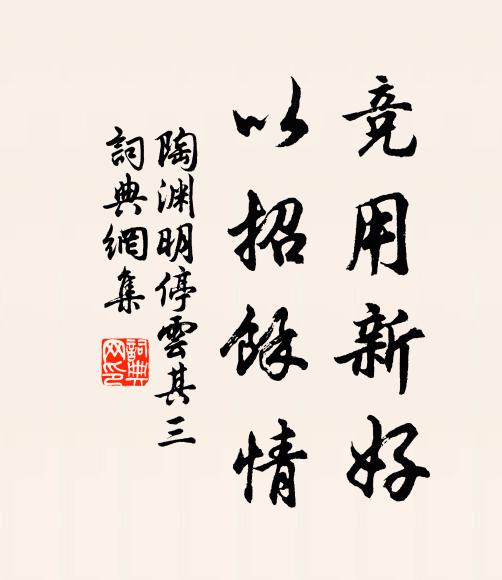 竞用新好
以招餘情
陶渊明停雲其三
詞典網集
詞典网印